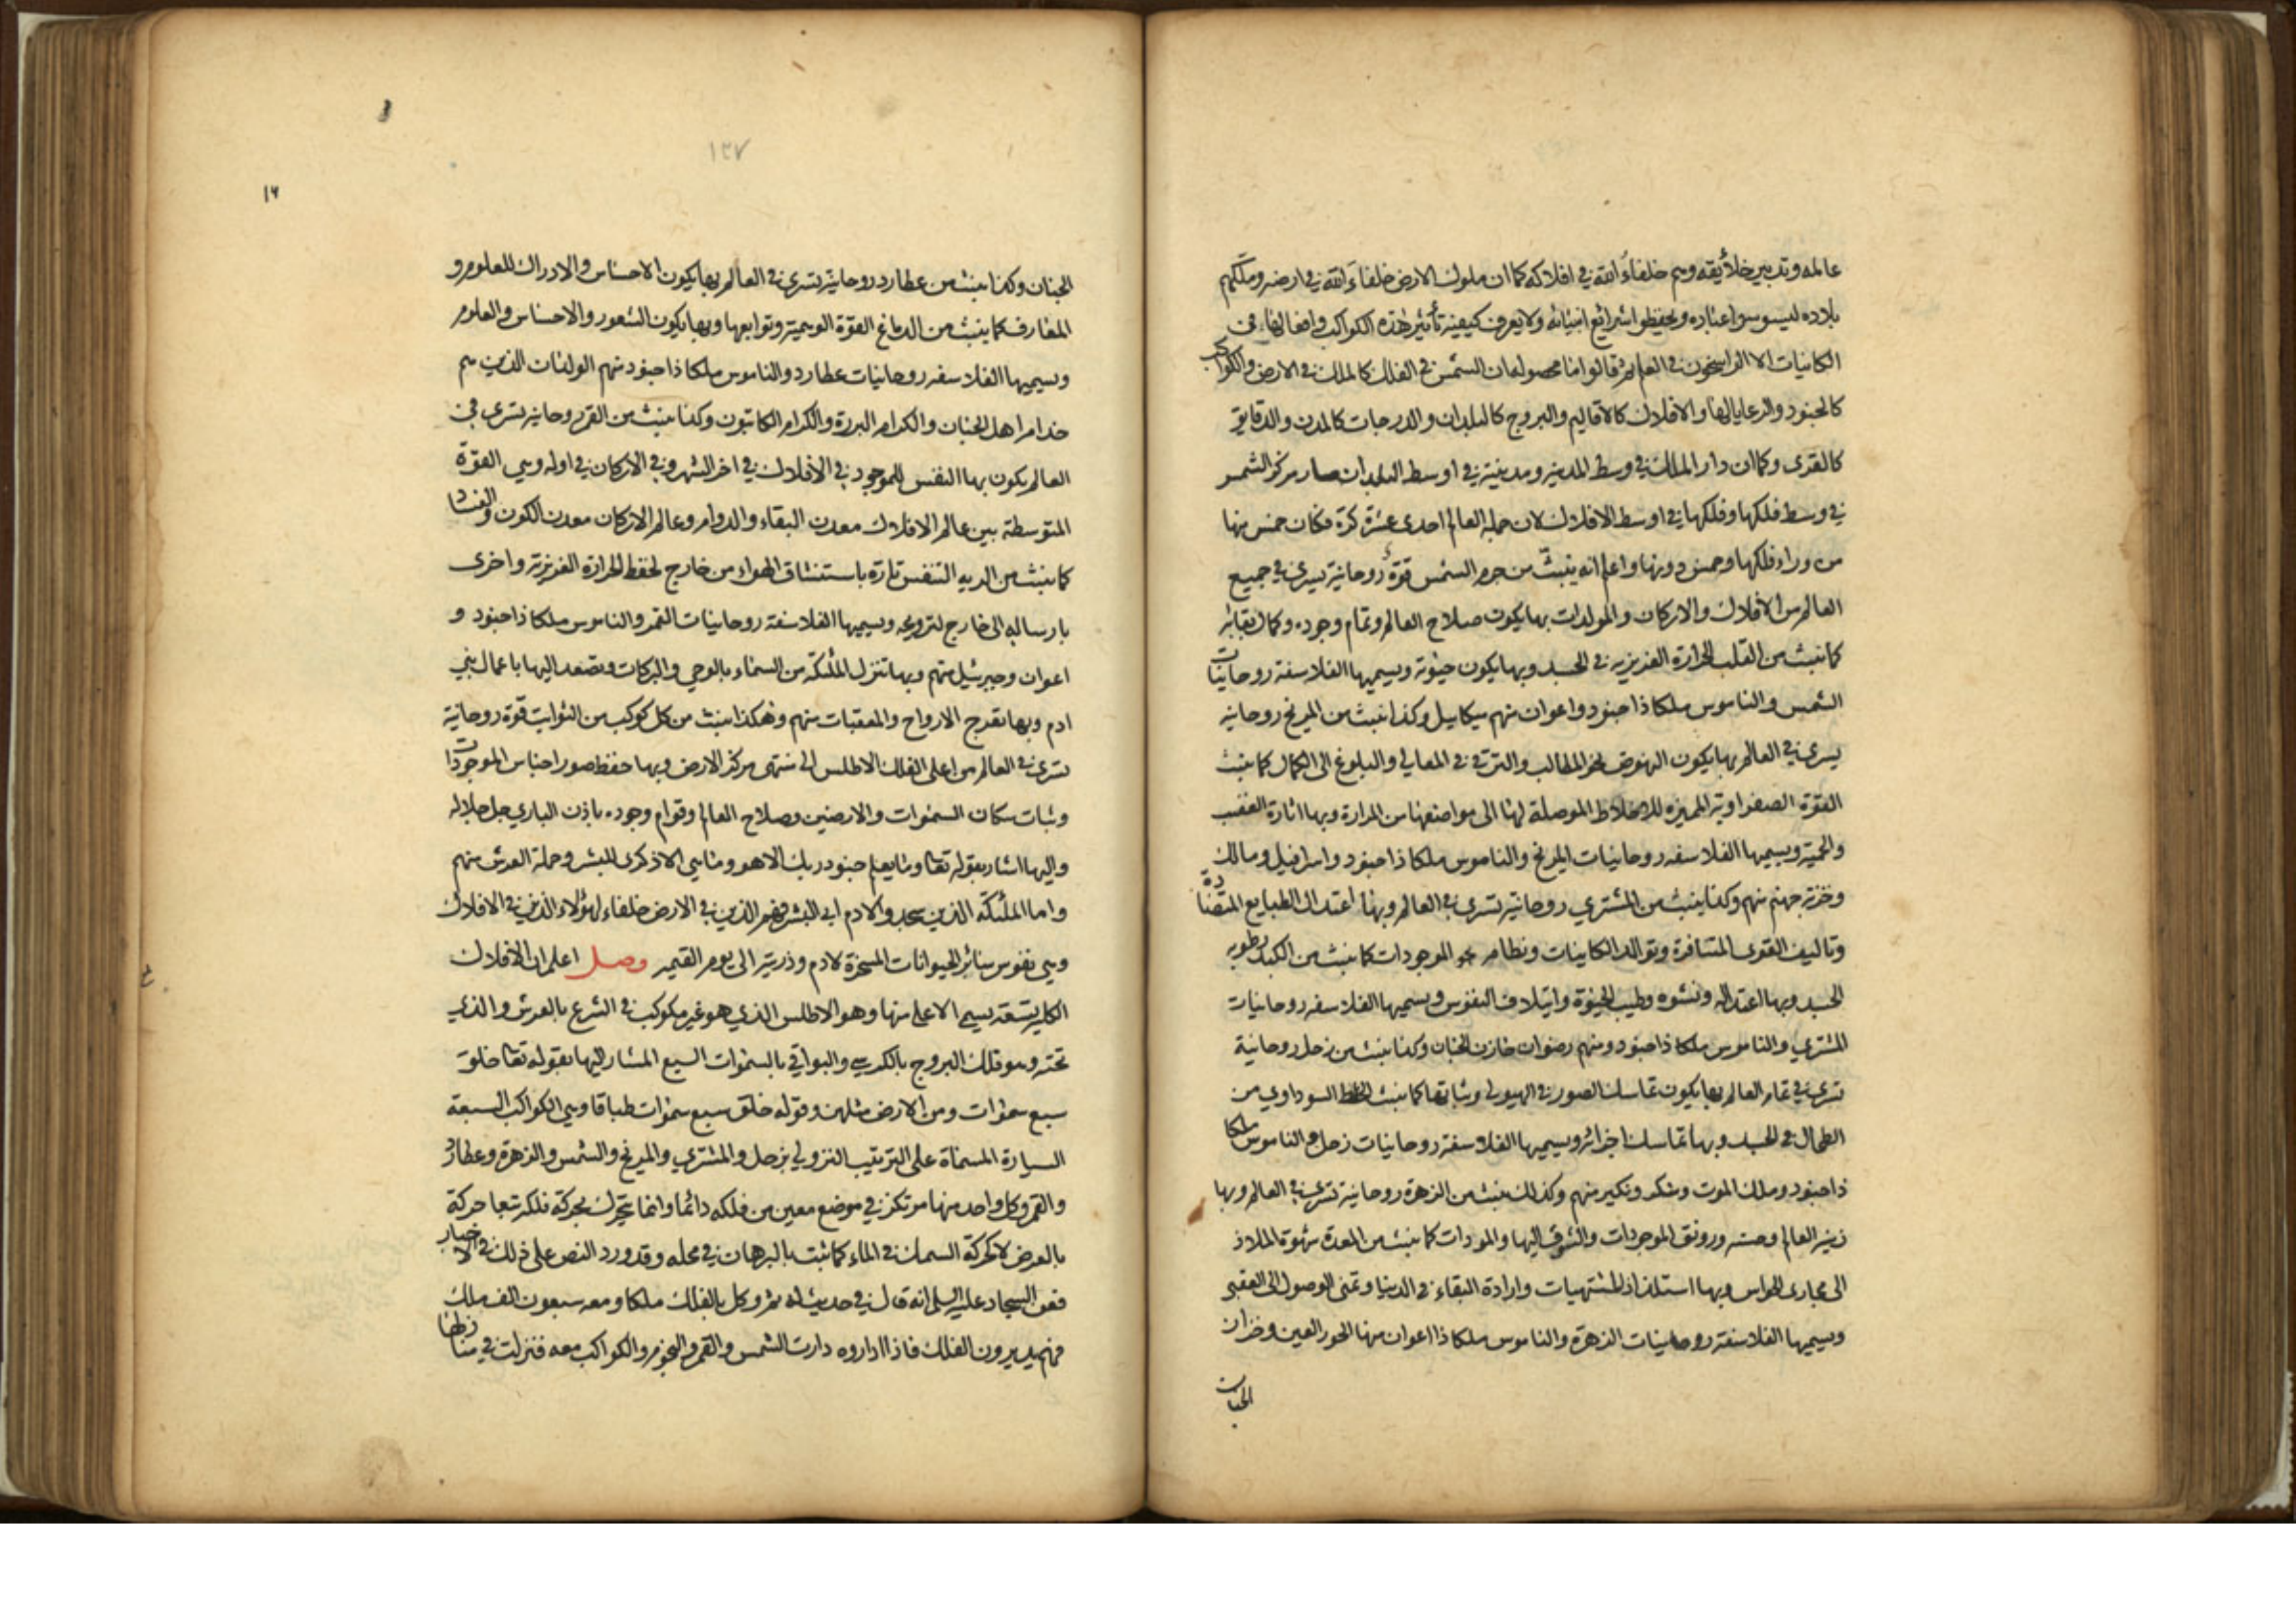 عالمه وتدبير خلائقه وهم خلفاء الله في افلاكه كما ان ملوك الارض خلفاء الله في ارضه وملكهم
بلاده ليسوسوا عباده ويحفظوا شرائع انبيائه ولا يعرف كيفية تأثير هذه الكواكب وافعالها في
الكاينات الا الراسخون في العلم ثم قالوا ما محصوله ان الشمس في الفلك كالملك في الارض والكواكب
كالجنود والرعايا لها والافلاك كالاقاليم والبروج كالبلدان والدرجات كالمدن والدقايق
كالقرى وكما ان دار الملك في وسط المدينة ومدينته في اوسط البلدان صار مركز الشمس
في وسط فلكها وفلكها في اوسط الافلاك لان جملة العالم احدى عشرة كرة فكان خمس منها
من وراء فلكها وخمس دونها واعلم انه ينبث من جرم الشمس قوة روحانية يسرى في جميع
العالم من الافلاك والاركان والمولدات بها يكون صلاح العالم وتمام وجوده وكمال بقائه
كما ينبث من القلب الحرارة الغريزية في الجسد وبها يكون حيوته ويسميها الفلاسفة روحانيات
الشمس والناموس ملكا ذا جنود واعوان منهم ميكاييل وكذا ينبث من المريخ روحانية
يسرى في العالم بها يكون النهوض نحو المطالب والترقي في المعالي والبلوغ الى الكمال كما ينبث
القوة الصفراوية المميزه للاخلاط الموصلة لها الى مواضعها من المرارة وبها اثارة الغضب
والحمية ويسميها الفلاسفه روحانيات المريخ والناموس ملكا ذا جنود واسرافيل ومالك
وخزنة جهنم منهم وكذا ينبث من المشتري روحانية تسرى في العالم وبها اعتدال الطبايع المتضادة
وتاليف القوى المتنافرة وتوالد الكاينات ونظام الموجودات كما ينبث من الكبد رطوبه
الجسد وبها اعتداله ونشوه وطيب الحيوة وايتلاف النفوس ويسميها الفلاسفه روحانيات
المشتري والناموس ملكا ذا جنود ومنهم رضوان خازن الجنان وكذا ينبث من زحل روحانية
تسرى في تمام العالم بها يكون تماسك الصور في الهيولى وثباتها كما ينبث الخلط السوداوي من
الطحال في الجسد وبها تماسك اجزائه ويسميها الفلاسفة روحانيات زحل والناموس ملكا
ذا جنود وملك الموت ومنكر ونكير منهم وكذلك ينبث من الزهرة روحانية تسرى في العالم وبها
زينة العالم وحسنه ورونق الموجودات والشوق اليها والمودات كما ينبث من المعدة شهوة الملاذ
الى مجارى الحواس وبها استلذاذ المشتهيات وارادة البقاء في الدنيا وتمنى الوصول الى العقبى
ويسميها الفلاسفة روحانيات الزهرة والناموس ملكا ذا اعوان منها الحور العين وخزان
الجنان
١٢٧
١٦
الجنان وكذا ينبث من عطارد روحانية تسرى في العالم بها يكون الاحساس والادراك للعلوم و
المعارف كما ينبث من الدماغ القوة الوهمية وتوابعها وبها يكون الشعور والاحساس والعلوم
ويسميها الفلاسفه روحانيات عطارد والناموس ملكا ذا جنود منهم الولدان الذين هم
خدام اهل الجنان والكرام البررة والكرام الكاتبون وكذا ينبث من القمر روحانية تسرى في
العالم يكون بها النفس للموجود في الافلاك في اخر الشهر وفي الاركان في اوله وهي القوة
المتوسطة بين عالم الافلاك معدن البقاء والدوام وعالم الاركان معدن الكون والفساد
كما ينبث من الريه التنفس تارة باستنشاق الهواء من خارج لحفظ الحرارة الغريزية واخرى
بارساله الى خارج لترويحه ويسميها الفلاسفة روحانيات القمر والناموس ملكا ذا جنود و
اعوان وجبرئيل منهم وبها تنزل الملئكة من السماء بالوحي والبركات وتصعد اليها باعمال بني
ادم وبها تعرج الارواح والمعقبات منهم وهكذا ينبث من كل كوكب من الثوابت قوة روحانية
تسرى في العالم من اعلى الفلك الاطلس الى منتهى مركز الارض وبها حفظ صور اجناس الموجودات
وثبات سكان السموات والارضين وصلاح العالم وقوام وجوده باذن الباري جل جلاله
واليها اشار بقوله تعا وما يعلم جنود ربك الا هو وما هي الا ذكرى للبشر وحملة العرش منهم
واما الملئكة الذين سجدوا لادم ابي البشر فهم الذين في الارض خلفاء لهؤلاء الذين في الافلاك
وهي نفوس سائر الحيوانات المسخرة لادم وذريته الى يوم القيمه وصل اعلم ان الافلاك
الكلية تسعة يسمى الاعلى منها وهو الاطلس الذي هو غير مكوكب في الشرع بالعرش والذي
تحته وهو فلك البروج بالكرسي والبواقي بالسموات السبع المشار اليها بقوله تعا خلق
سبع سموات ومن الارض مثلهن وقوله خلق سبع سموات طباقا وهي الكواكب السبعة
السيارة المسماة على الترتيب النزولي بزحل والمشتري والمريخ والشمس والزهرة وعطارد
والقمر وكل واحد منها مرتكز في موضع معين من فلكه دائما وانما يتحرك بحركة فلكه تبعا حركة
بالعرض لا كحركة السمك في الماء كما ثبت بالبرهان في محله وقد ورد النص على ذلك في الاخبار
فعن السجاد عليه السلم انه قال في حديث له ثم وكل بالفلك ملكا ومعه سبعون الف ملك
فهم يديرون الفلك فاذا اداروه دارت الشمس والقمر والنجوم والكواكب معه فنزلت في منازلها